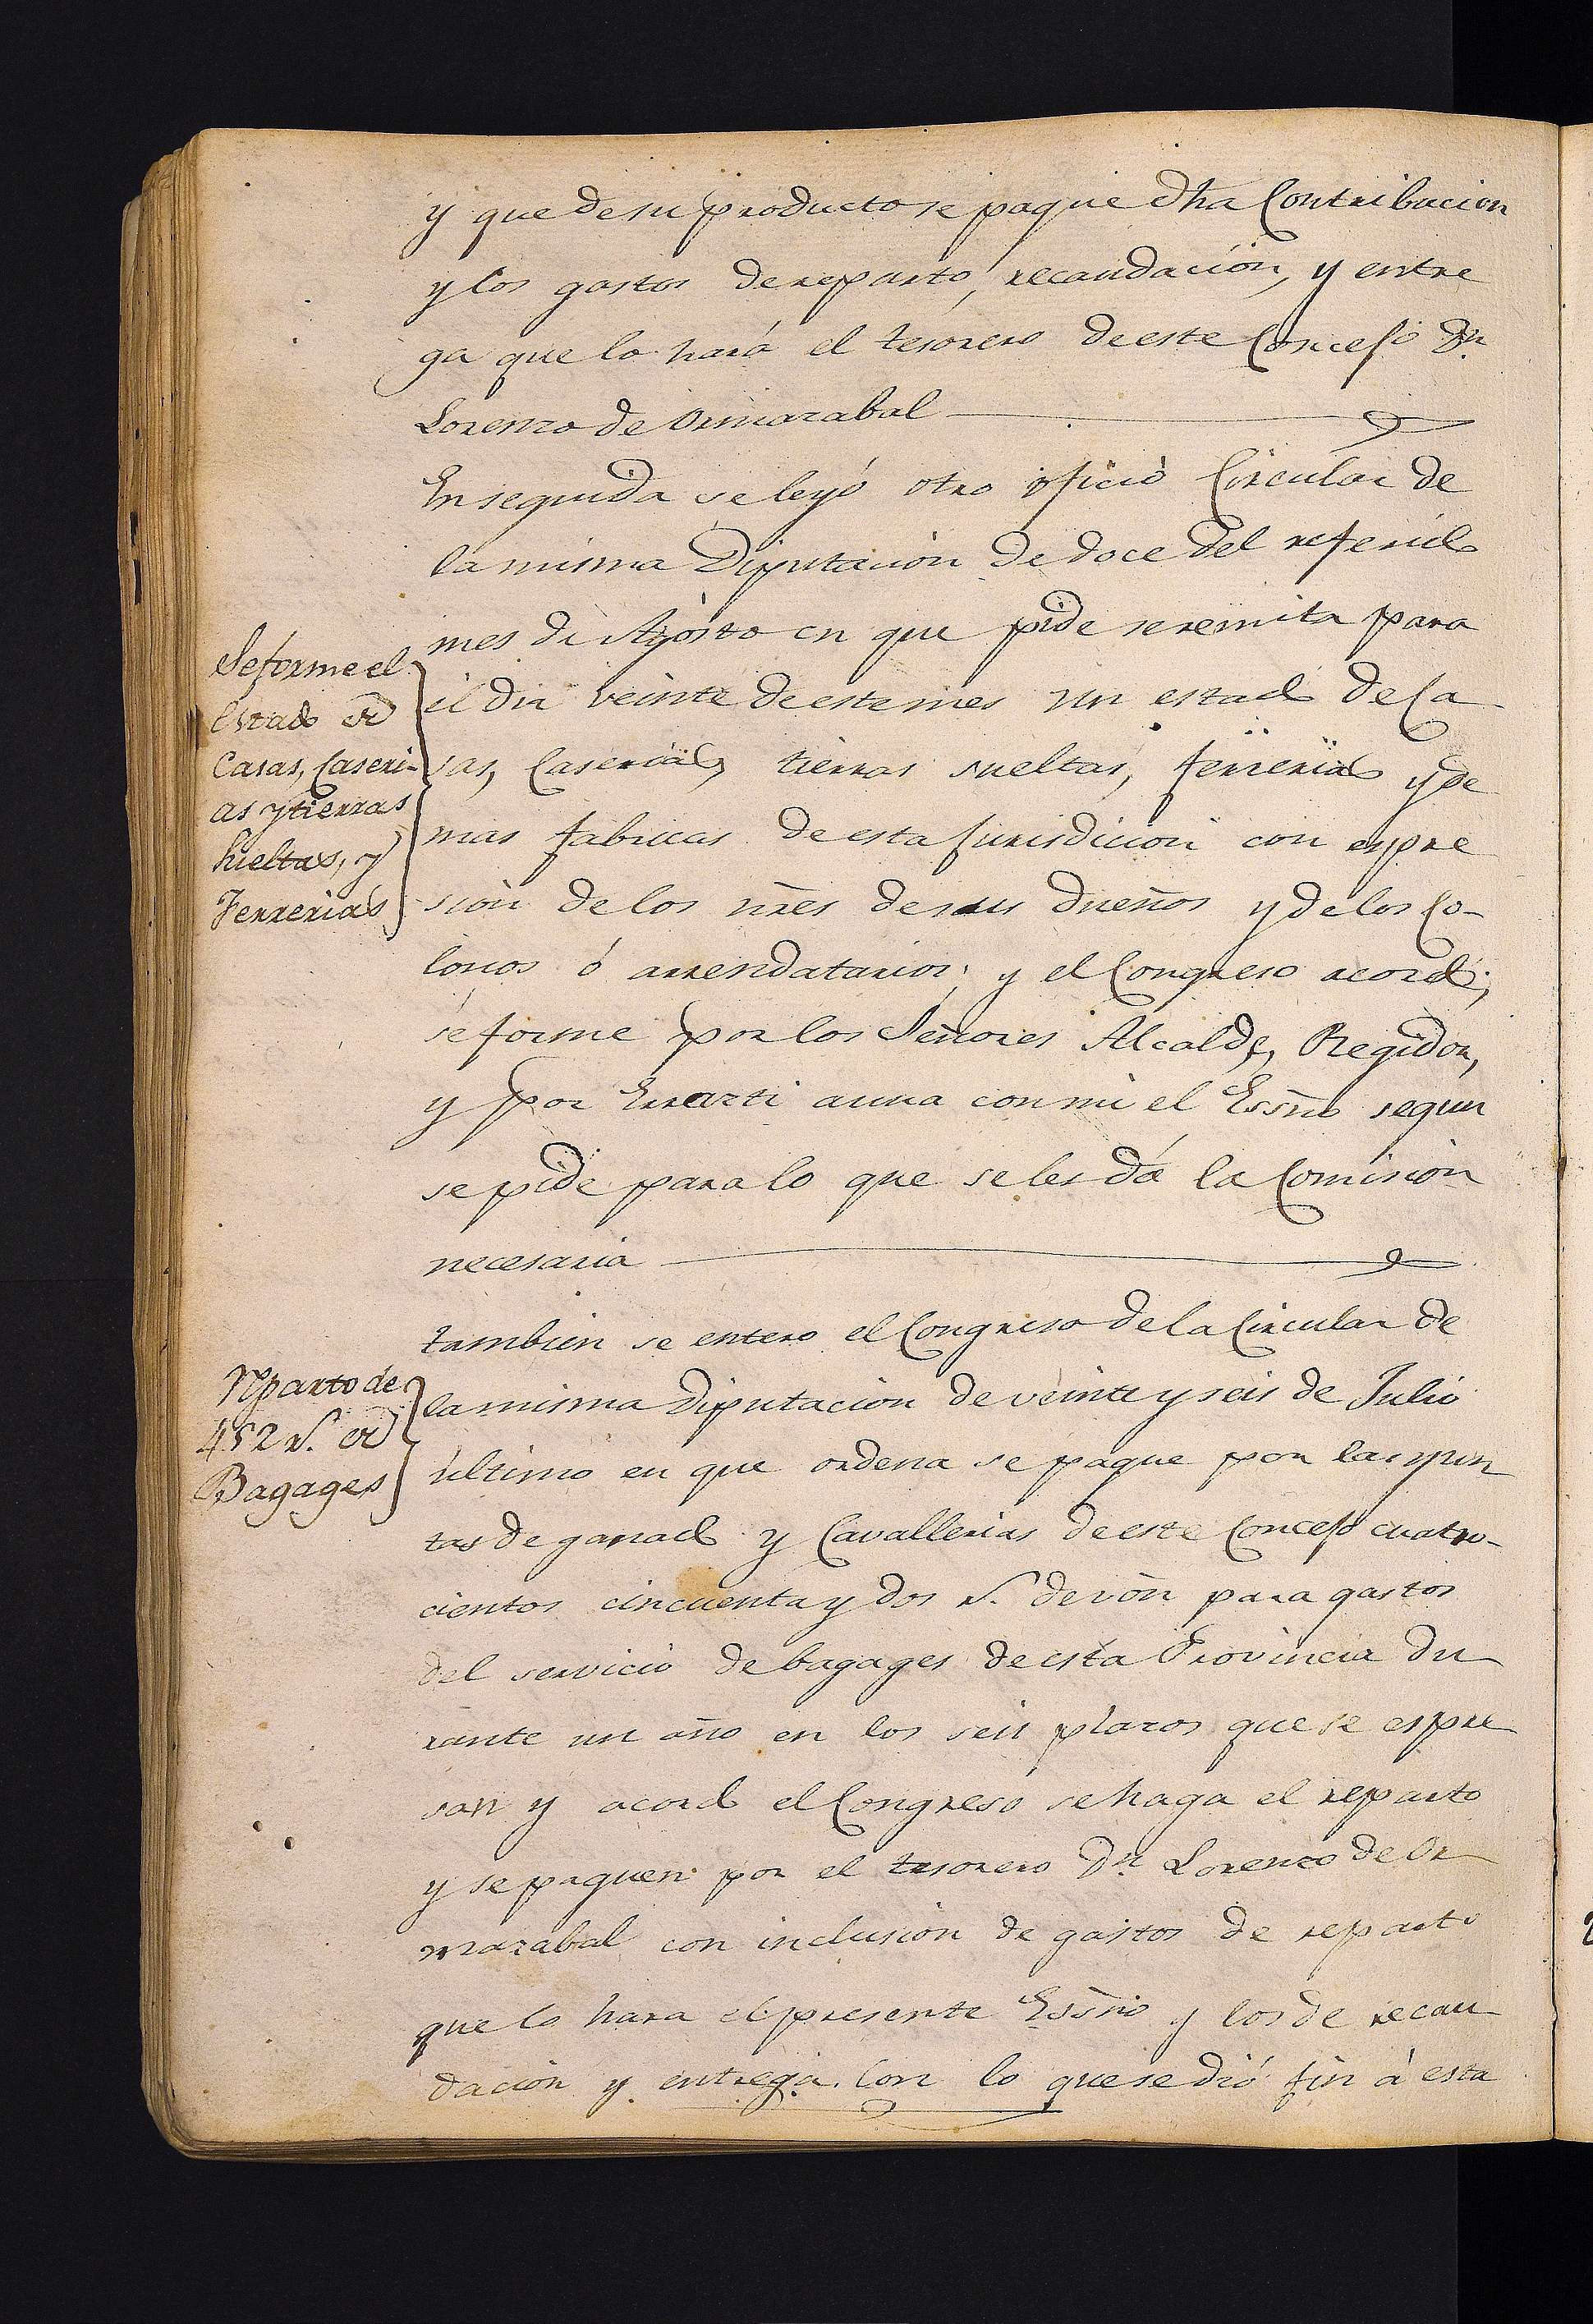 y que de su producto se pague dha Contribucion
y los gastos de reparto, recaudacion, y entre
ga que lo hará el tesorero de este Concejo Dn.
Lorenzo de Ormarabal
En seguida se leyó otro oficio Circular de
la misma Diputacion de doce del referido
mes de Agosto en que pide se remita para
el dia veinte de este mes un estado de Ca
sas, Caserias, tierras sueltas, ferrerias y de
mas fabricas de esta Jurisdicion con espre
sion de los nres de sus dueños y de los Co-
lonos ó arrendatarios; y el Congreso acordó,
se forme por los Señores Alcalde, Regidor,
y por Errarti a una con mi el Essno segun
se pide para lo que se les dá la Comision
necesaria
Se forme el
Estado de
Casas, Caseri-
as y tierras
sueltas, y
Ferrerias
tambien se entero el Congreso de la Circular de
la misma Diputacion de veinte y seis de Julio
ultimo en que ordena se pague por las yun
tas de ganado y Cavallerias de este Concejo cuatro-
cientos cincuenta y dos rs. de von para gastos
del servicio de bagages de esta Provincia du
rante un año en los seis plazos que se espre
san y acordó el Congreso se haga el reparto
y se paguen por el tesorero Dn. Lorenzo de Or
marabal con inclusion de gastos de reparto
que lo hara el presente Essno y los de recau
dacion y entrega. Con lo que se dió fin à esta
Reparto de
452 rs. de
Bagages